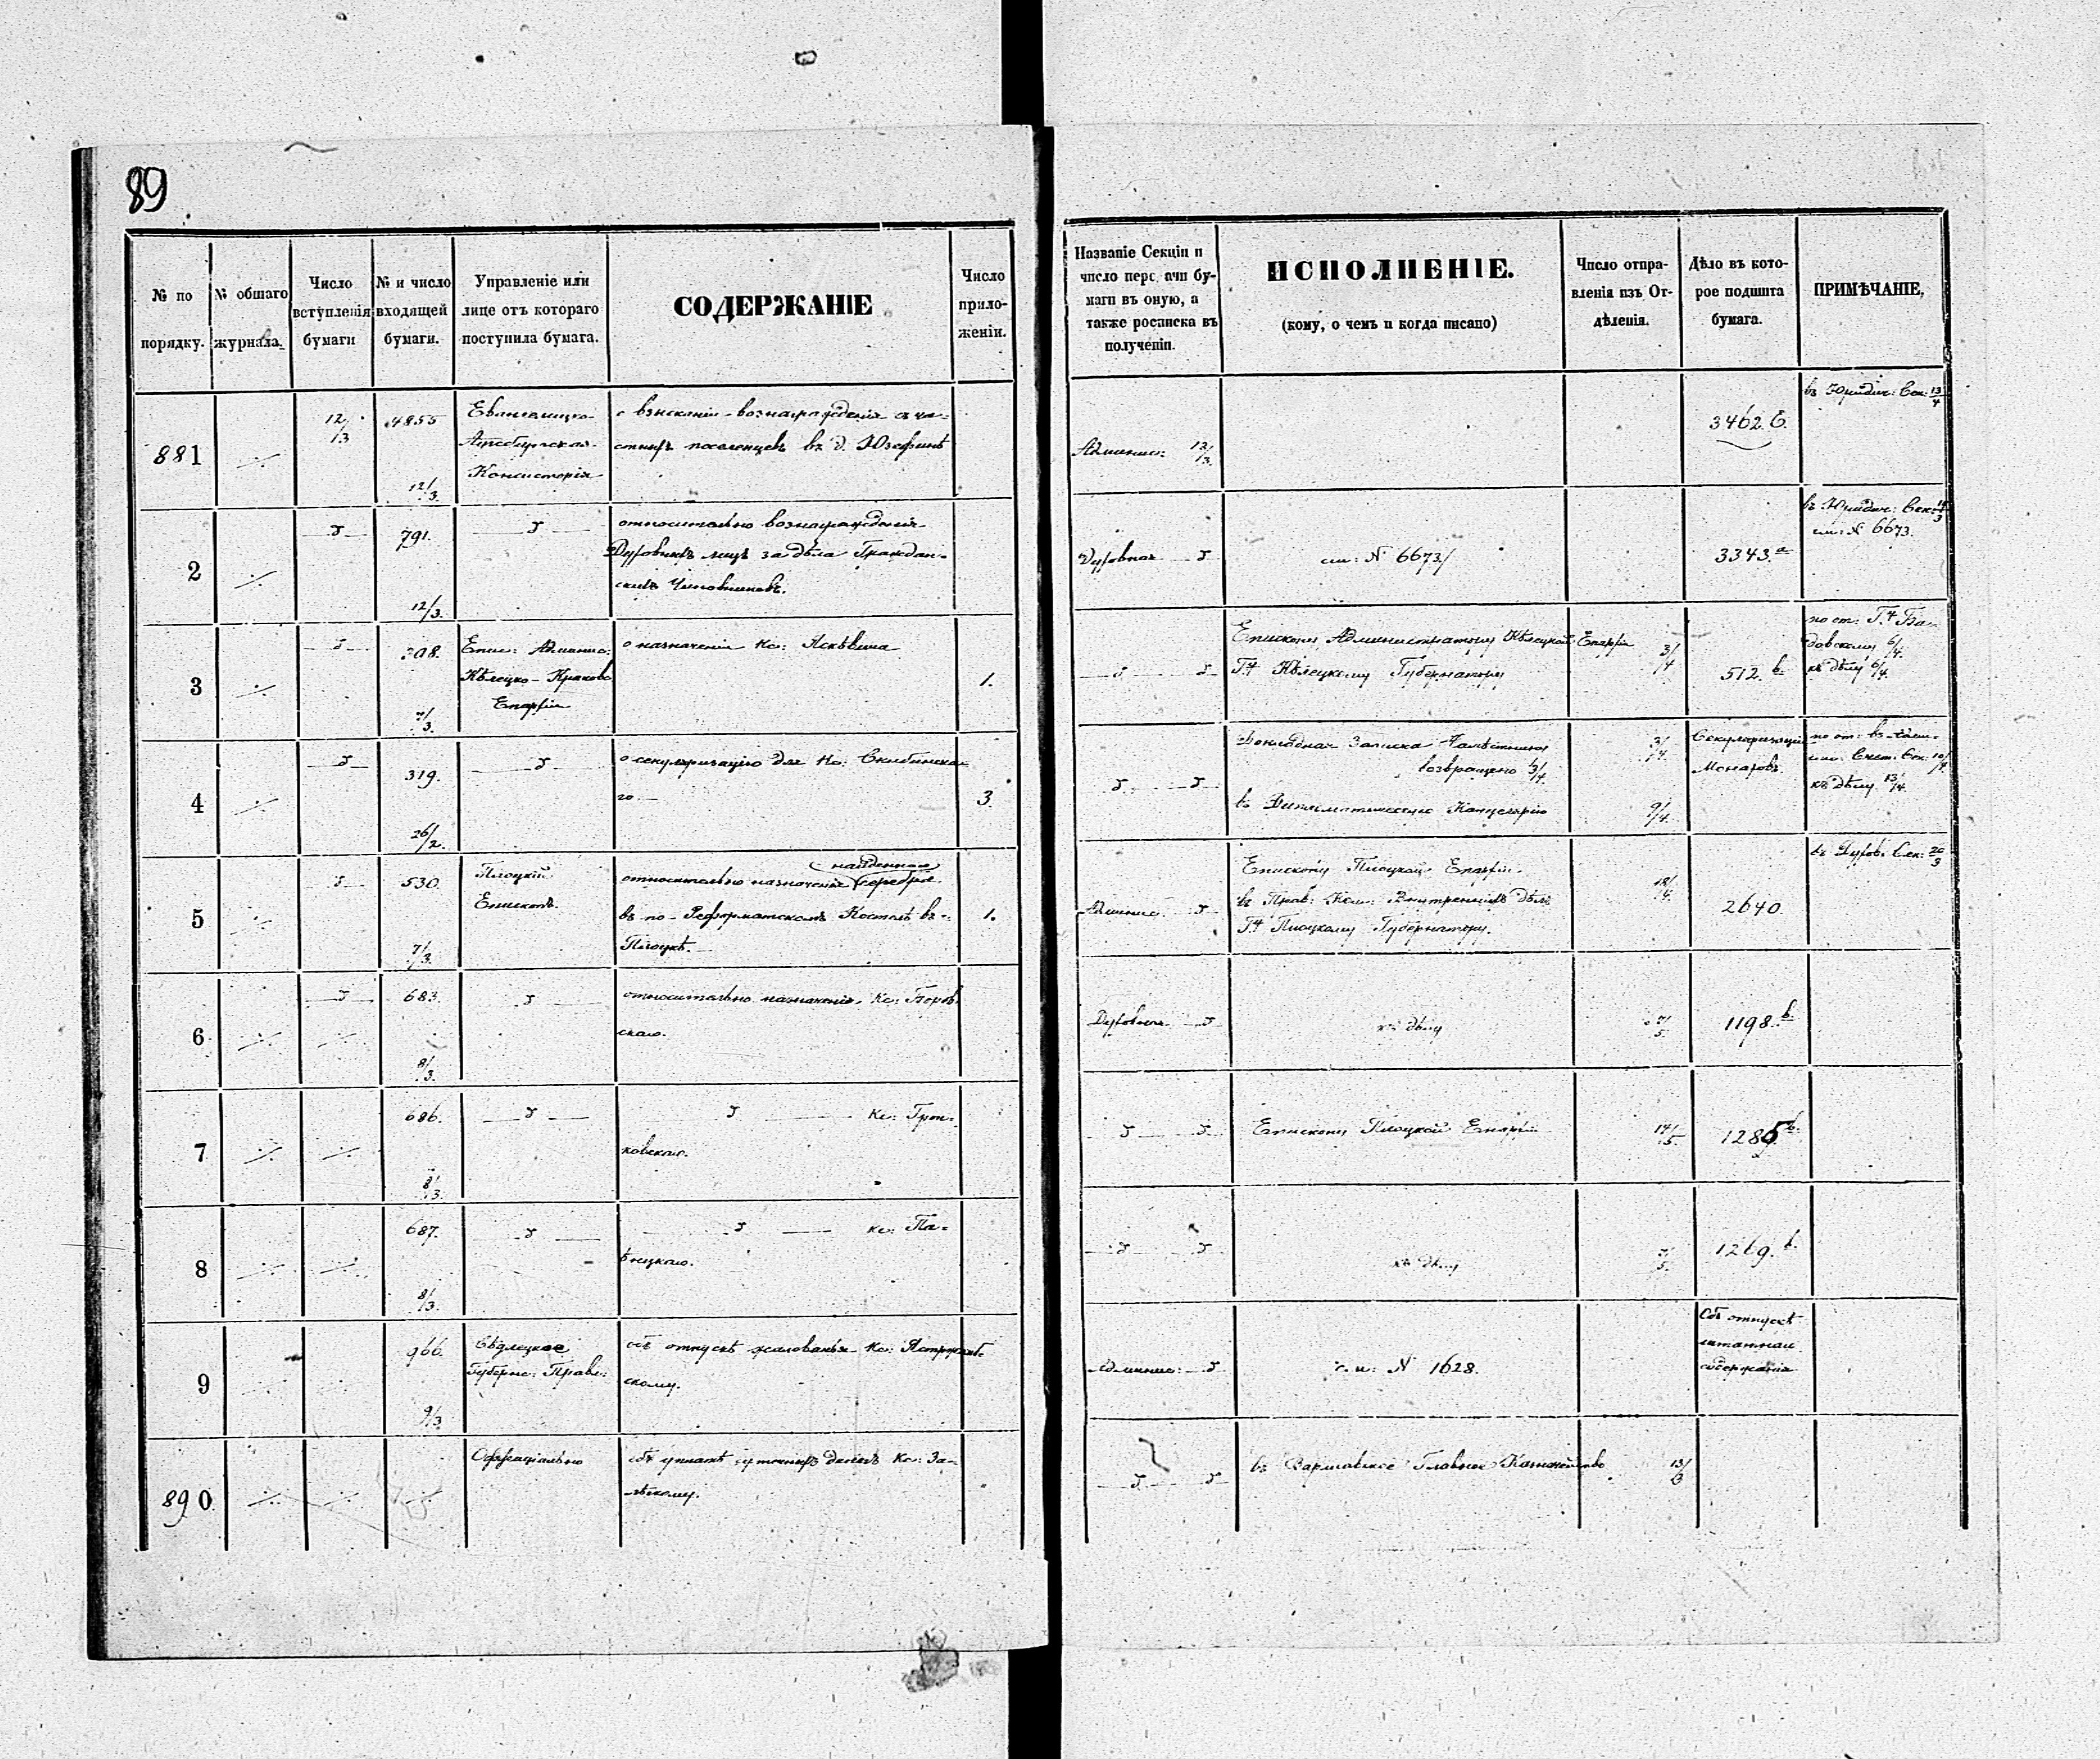 89
№ по порядку.
№ общаго журнала.
Число вступленія бумаги
№ и число входящей бумаги.
Управленіе или лице отъ котораго поступила бумага.
СОДЕРЖАНІЕ
Число приложеніи.
Названіе Секціи и число перс ачи бумаги въ оную, а также росписка въ полученіи.
ИСПОЛНЕНІЕ.
(кому, о чемъ и когда писано)
Число отправленія изъ Отдѣленія.
Дѣло въ которое подшита бумага.
ПРИМѢЧАНІЕ,
881 12/13 4855 12/3.
Евангелицко-
Аугсбургская
Консисторія
о взысканіи вознагражденія съ ча-
стныхъ поселенцевъ въ д. Юзефинѣ
Админис: 12/3.
3462. б.
въ Юридич: Сек: 13/4
2 791. 12/3.
относительно вознагражденія
Духовныхъ лицъ за дѣла Граждан-
скихъ Чиновниковъ.
Духовная
см: № 6673/
3343. а
въ Юридич: Сек:
см: № 6673.
3 7/3. 1.
Епис: Админис:
Кѣлецко-Краковс
Епархіи
о назначеніи Кс:
Епископу, Администратору Кѣлецкой Епархіи
Гну Кѣлецкому Губернатору
3/4
512. b
к дѣлу 6/4.
4 319. 26/2. 3.
о секуляризацію для Кс: Скибинска-
го.
Докладная Записка Намѣстнику
возвращено 3/4.
въ Дипломатическую Канцелярію
3/4. 9/4.
Секуляризація
Монаховъ.
къ дѣлу 13/4.
5 530. 7/3. 1.
Плоцкій
Епископъ.
найденнаго
относительно назначенія серебра
въ по-Реформатскомъ Костелѣ въ
Плоцкѣ.
Админис:
Епископу Плоцкой Епархіи.
въ Прав: Ком: Внутреннихъ Дѣлъ
Гну Плоцкому Губернатору.
18/4.
2640.
въ Духов: Сек: 20/3
6 683. 8/3.
относительно назначенія Кс: Боров-
скаго.
Духовная
къ дѣлу
7/5.
1198. b
7 686. 8/3.
Кс: Грон-
ковскаго.
Епископу Плоцкой Епархіи
14/5
1285 b.
8 687. 8/3.
Кс: Па-
къ дѣлу
7/5.
1269. b.
9 966. 9/3
Сѣдлецкое
Губернс: Правл:
объ отпускѣ жалованья Кс:
скому.
Админис:
см: № 1628.
Объ отпускѣ
штатнаго
содержанія
890
Оффиціально
объ уплатѣ суточныхъ денегъ Кс: За-
лѣскому.
въ Варшавское Главное Казначейство
13/3